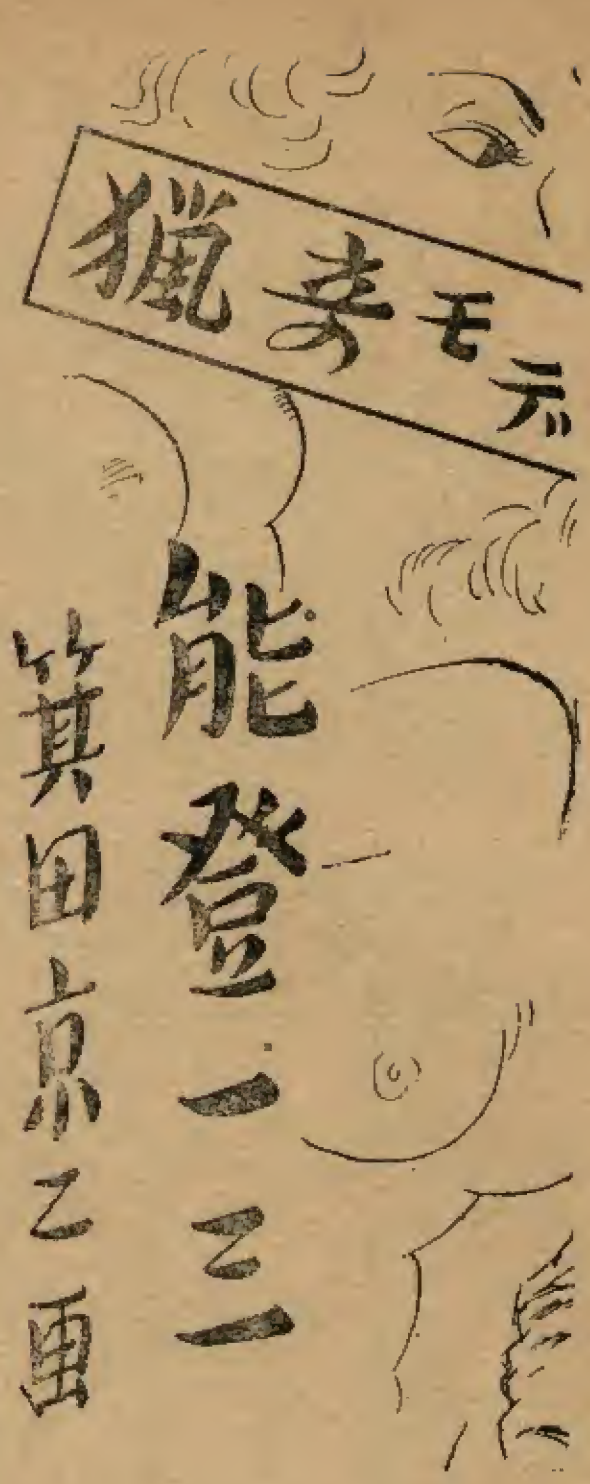 猟奇モデ
能登一三
箕田京二画